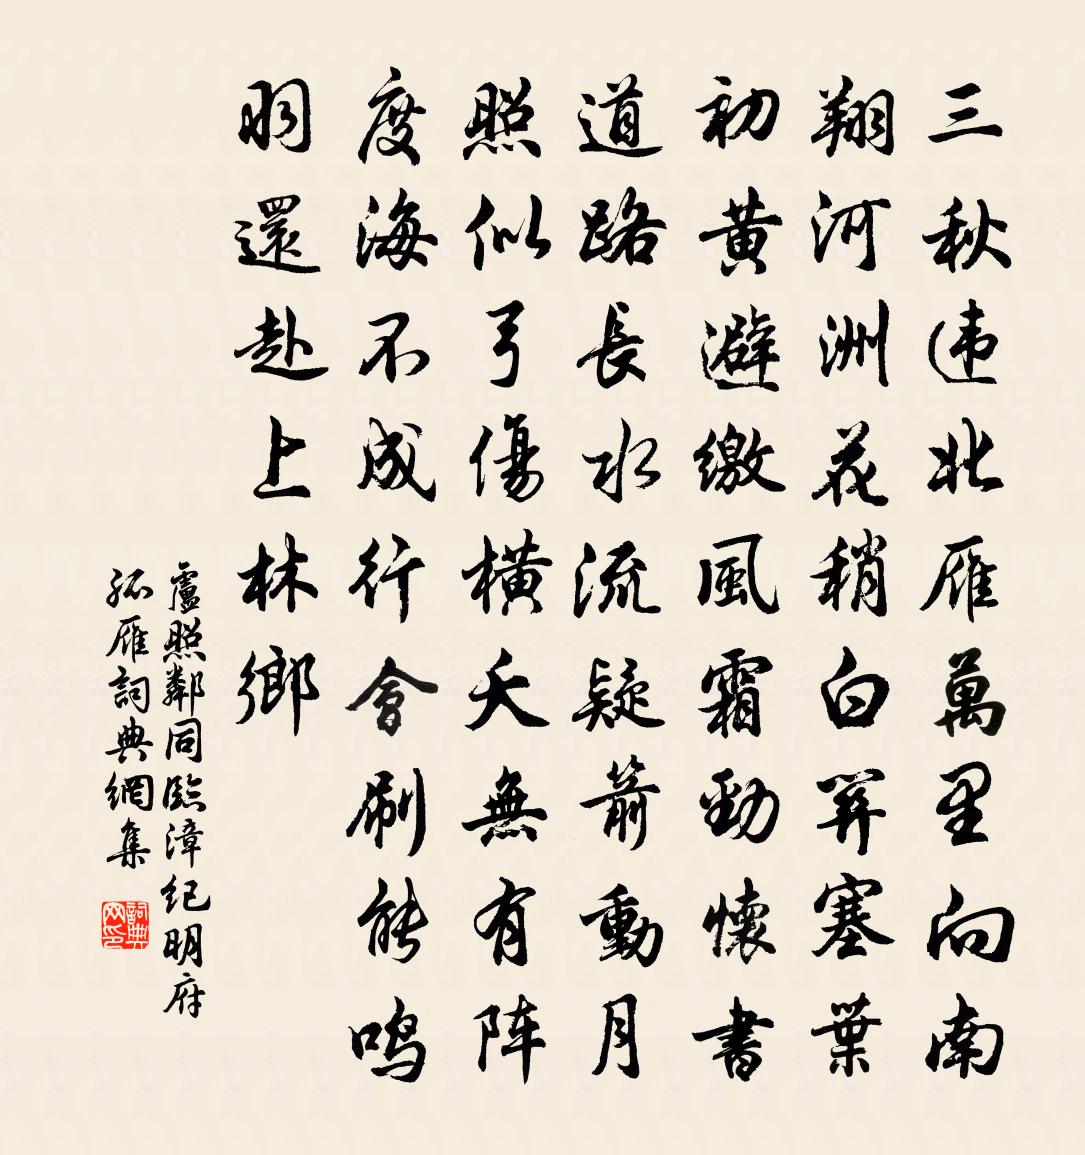 三秋违北雁萬里向南
翔河洲花稍白关塞葉
初黄避缴風霜勁懷書
道路長水流疑箭動月
照似弓傷横天無有阵
度海不成行會刷能鸣
羽還赴上林鄉
盧照鄰同臨漳纪明府
孤雁詞典網集
詞典网印